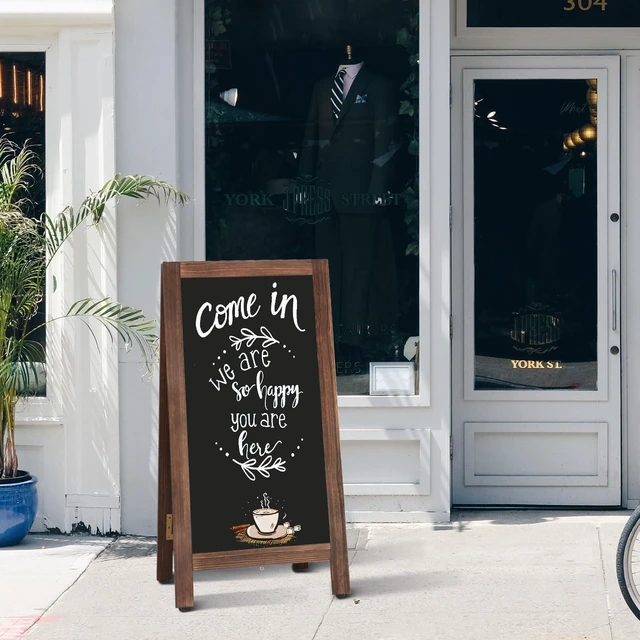 304
YORK J.PRESS STREET
Come in
we are
so happy
you are
here
YORK ST.